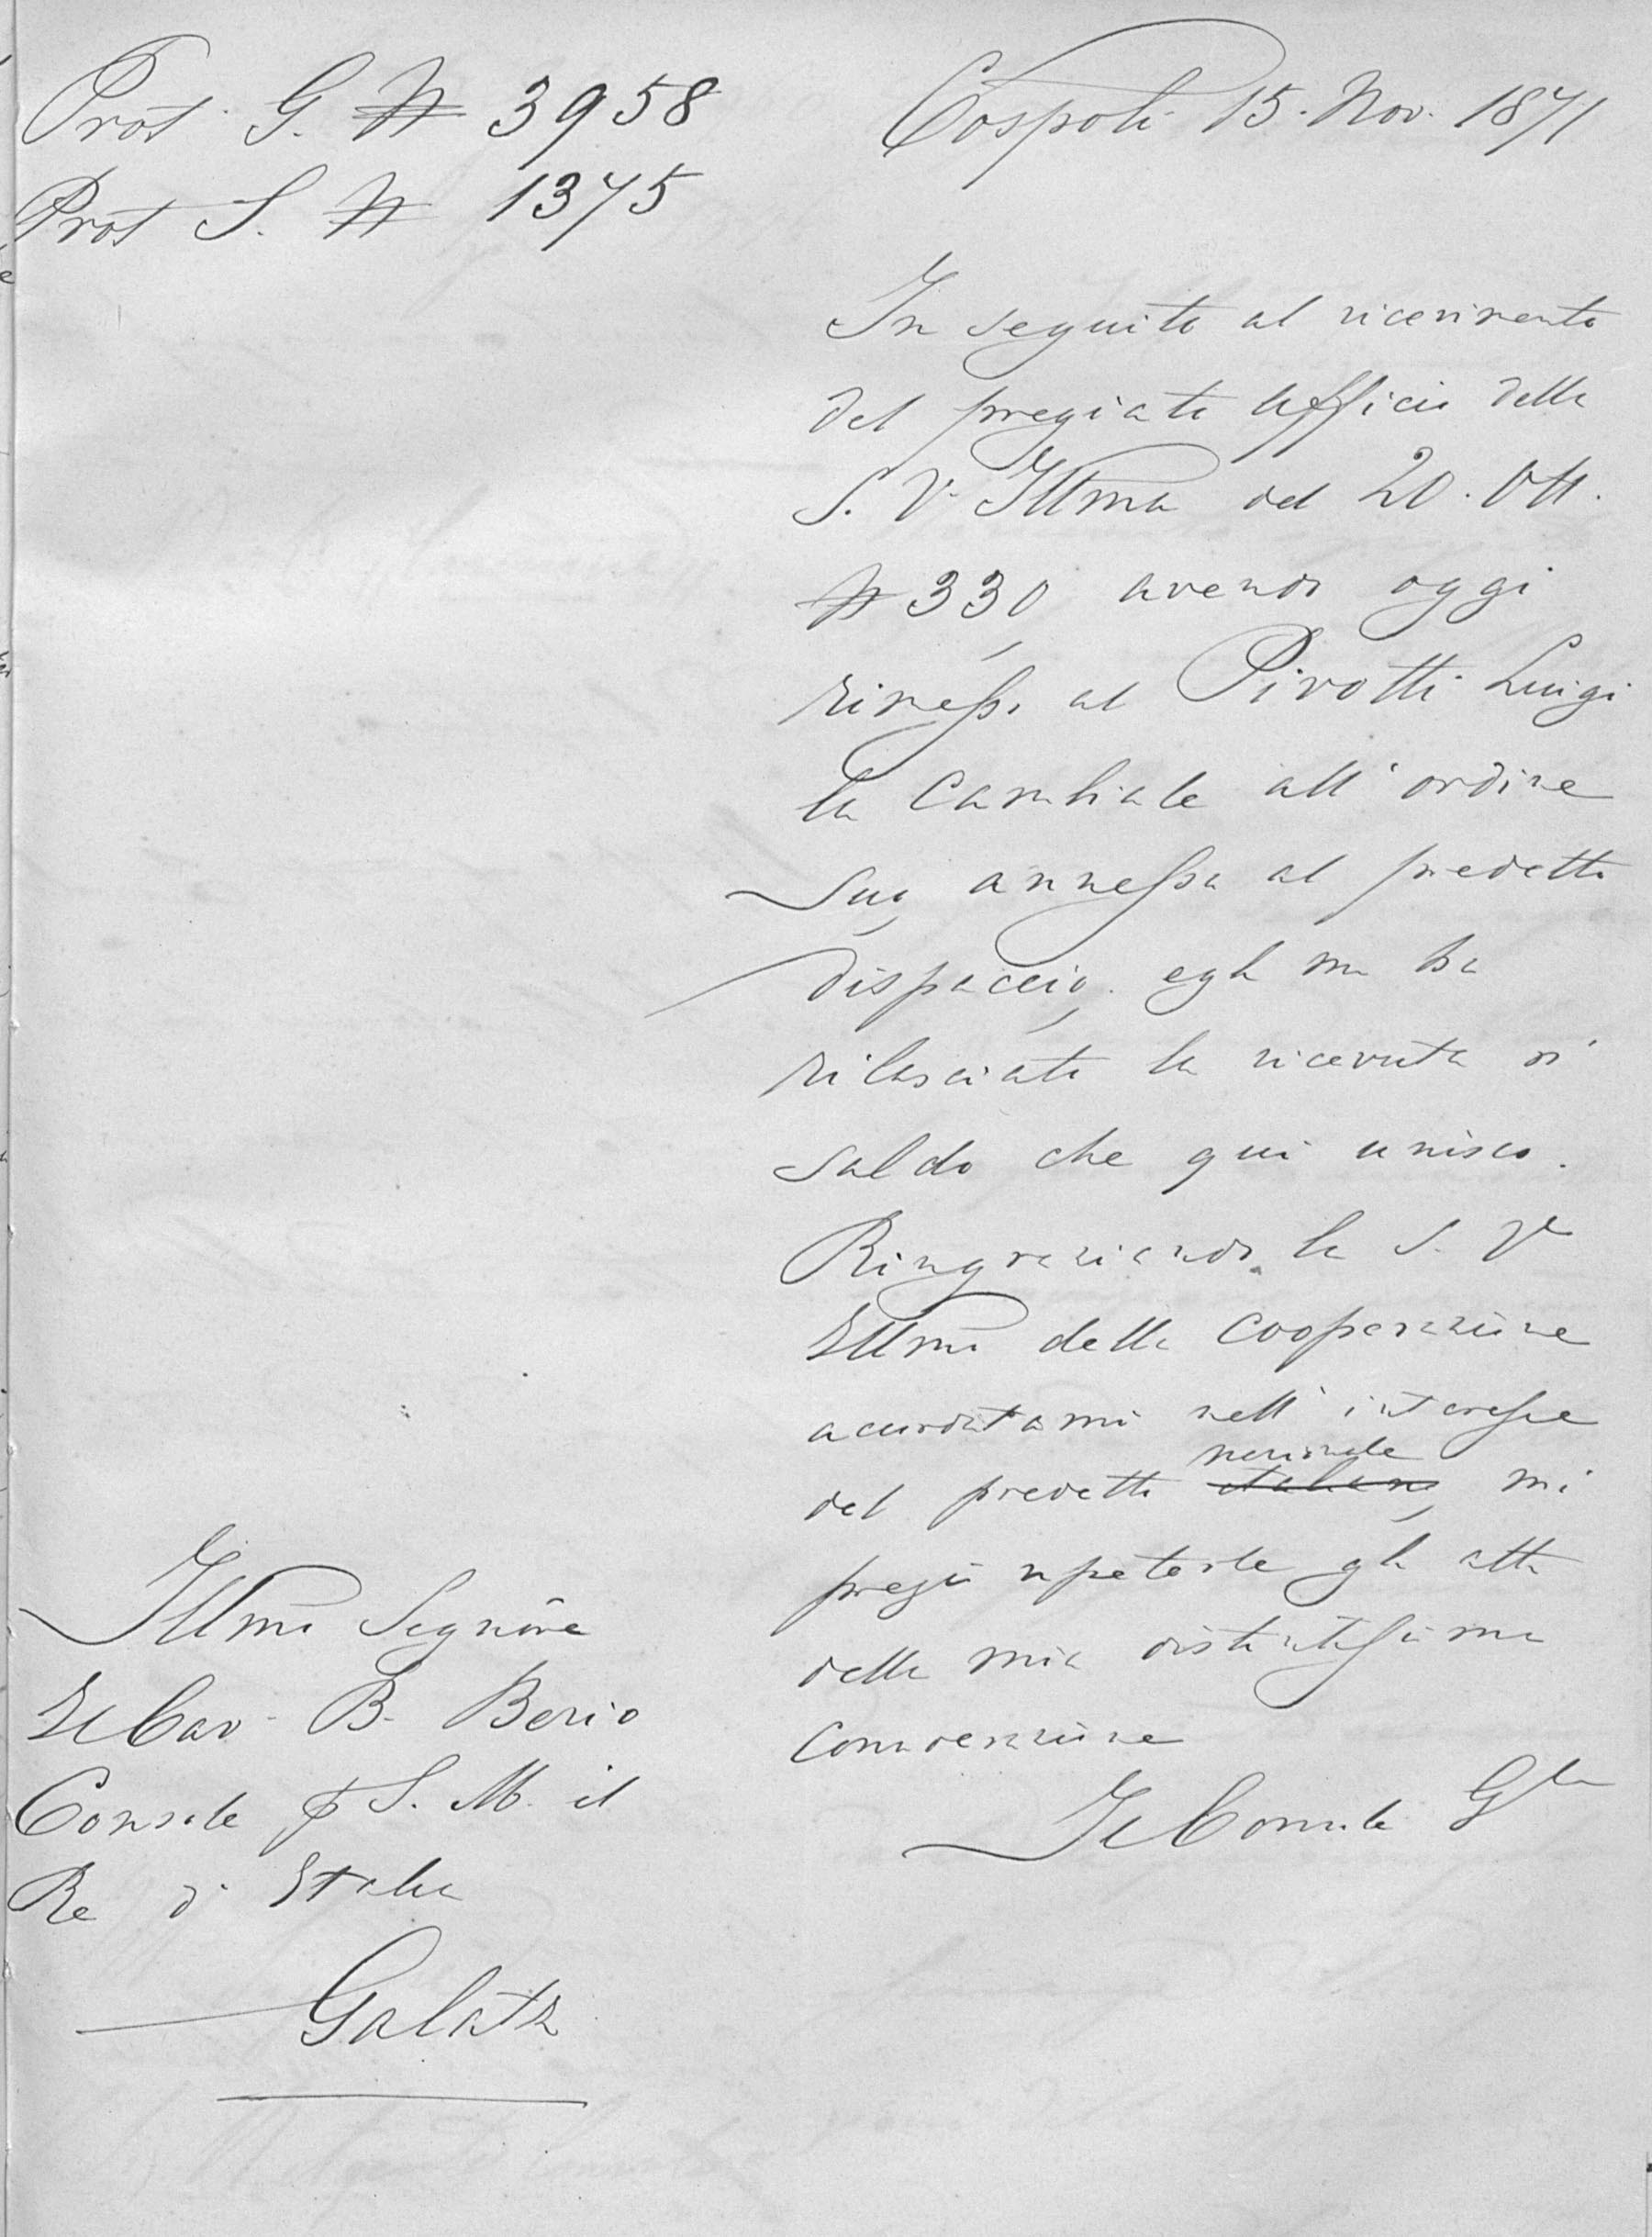 Prot. G. N 3958
Prot S. N 1375
Cospoli 15. Nov. 1871
In seguito al ricevimento
del pregiato ufficio della
S. V. Illma del 20. Ott.
N 330, avendo oggi
rimesso al Pirotti Luigi
la Cambiale all'ordine
suo, annessa al predetto
dispaccio, egli mi ha
rilasciato la ricevuta di
saldo che qui unisco.
Ringraziando la S. V.
Illma della cooperazione
accordatami nell'interesse
nazionale
del predetto italiano, mi
pregio ripeterle gli atti
della mia distintissima
considerazione
Il Console Gle
Illmo Signore
Il Cav. B. Berio
Console di S. M. il
Re d'Italia
Galatz